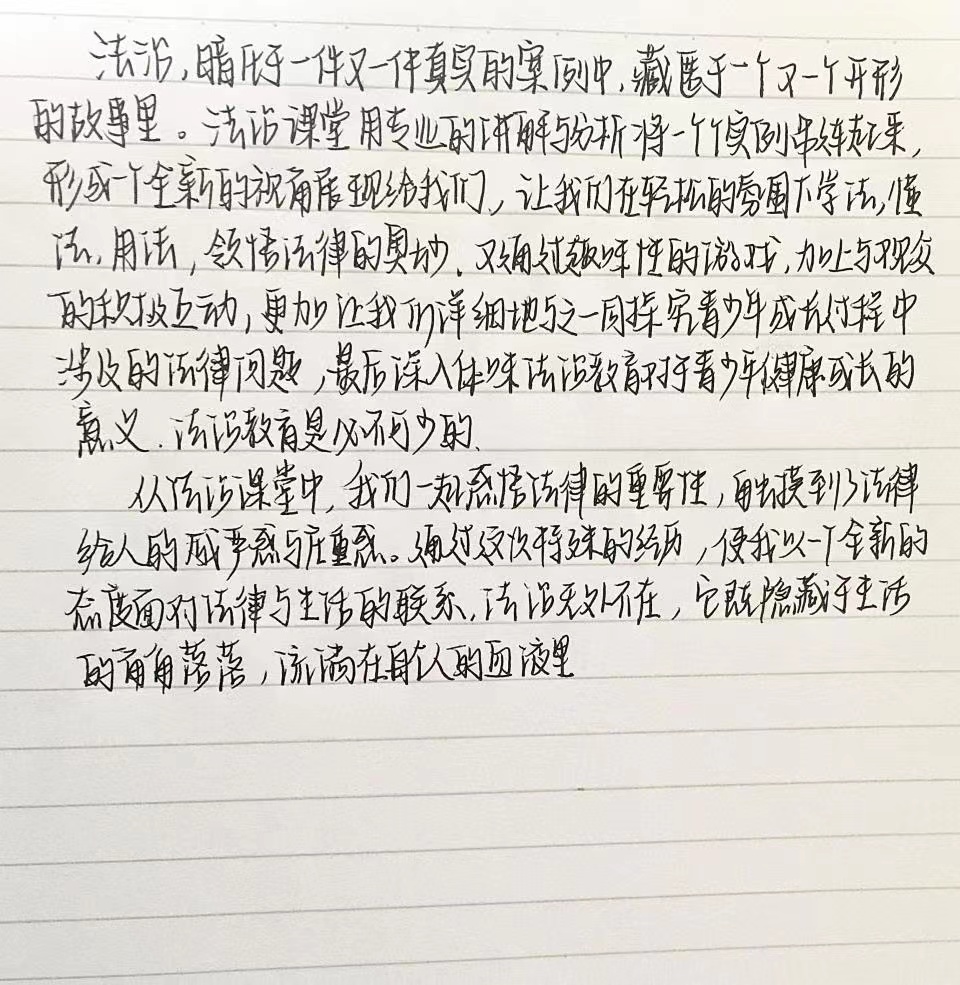 法治,暗历于一件又一件真实的案例中,藏匿于一个又一个开形
的故事里。法治课堂用专业的讲解与分析将一个个实例串练起来,
形成一个全新的视角展现给我们,让我们在轻松的氛围下学法,懂
法,用法,领悟法律的奥妙.又通过趣味性的游戏,加上与观众
的积极互动,更加让我们详细地与之一同探究青少年成长过程中
涉及的法律问题,最后深入体味法治教育对于青少年健康成长的
意义.法治教育是必不可少的.
从法治课堂中,我们一起感悟法律的重要性,触摸到了法律
给人的威严感与庄重感。通过这次特殊的经历,使我以一个全新的
态度面对法律与生活的联系.法治无处不在,它既隐藏于生活
的角角落落,流淌在每个人的血液里